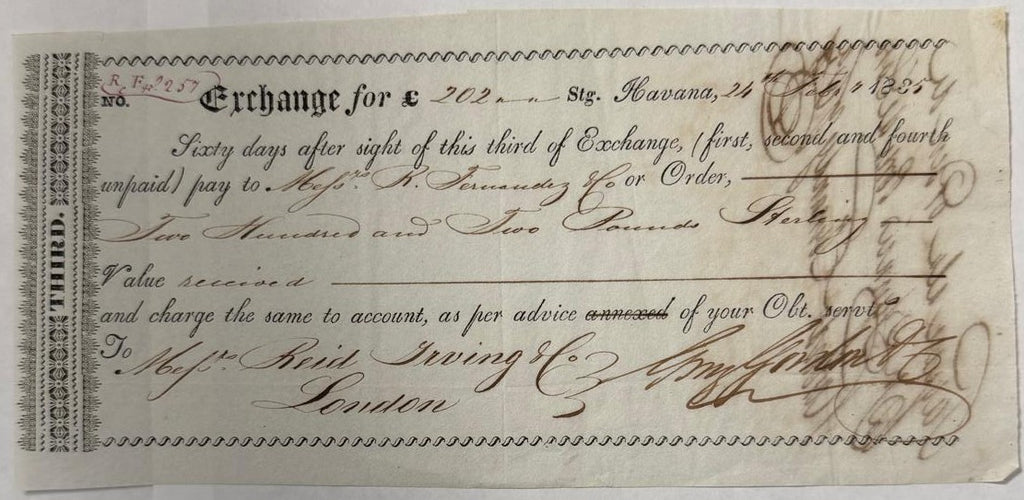 THIRD.
R. F. 257
NO. Exchange for £ 202 Stg. Havana, 24th Feb. 1835
Sixty days after sight of this third of Exchange, (first, second and fourth
unpaid) pay to Messrs. R. Fernandez & Co or Order,
Two Hundred and Two Pounds Sterling
Value received
and charge the same to account, as per advice annexed of your Obt. servts
To
Messrs. Reid Irving & Co
London